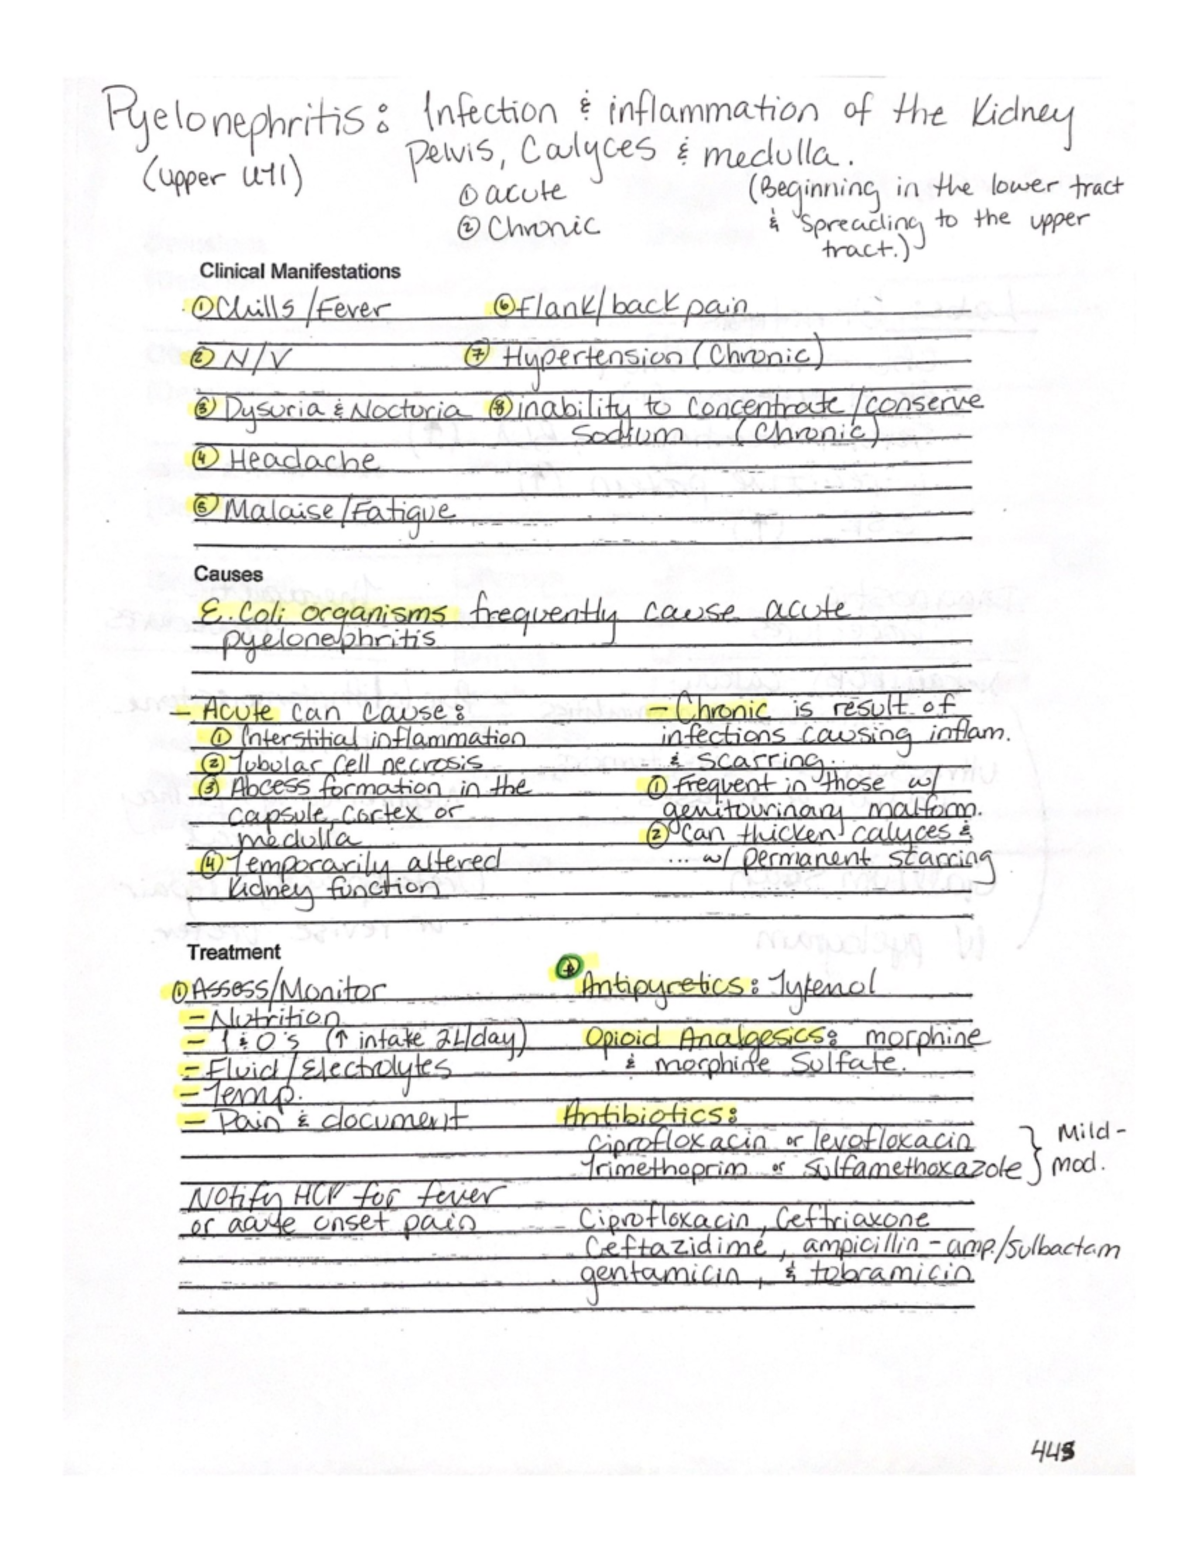 Pyelonephritis: Infection & inflammation of the Kidney
(upper UTI) Pelvis, Calyces & medulla.
① acute (Beginning in the lower tract
② Chronic & Spreading to the upper
tract.)
Clinical Manifestations
① Chills/Fever ⑥ Flank/back pain
② N/V ⑦ Hypertension (Chronic)
③ Dysuria & Nocturia ⑧ inability to concentrate/conserve
Sodium (Chronic)
④ Headache
⑤ Malaise/Fatigue
Causes
E. Coli organisms frequently cause acute
pyelonephritis
- Acute can cause: - Chronic is result of
① Interstitial inflammation infections causing inflam.
② Tubular cell necrosis & scarring.
③ Abcess formation in the ① Frequent in those w/
capsule, cortex or genitourinary malform.
medulla ② Can thicken calyces &
④ Temporarily altered w/ permanent starring
Kidney function
Treatment
① Assess/Monitor Antipyretics: Tylenol
- Nutrition
- I & O's (↑ intake 2L/day) Opioid Analgesics: morphine
- Fluid/Electrolytes & morphine Sulfate.
- Temp.
- Pain & document Antibiotics:
Ciprofloxacin or levofloxacin } Mild-
Trimethoprim or Sulfamethoxazole mod.
Notify HCP for fever
or acute onset pain Ciprofloxacin, Ceftriaxone
Ceftazidime, ampicillin - amp./sulbactam
gentamicin, & tobramicin
443